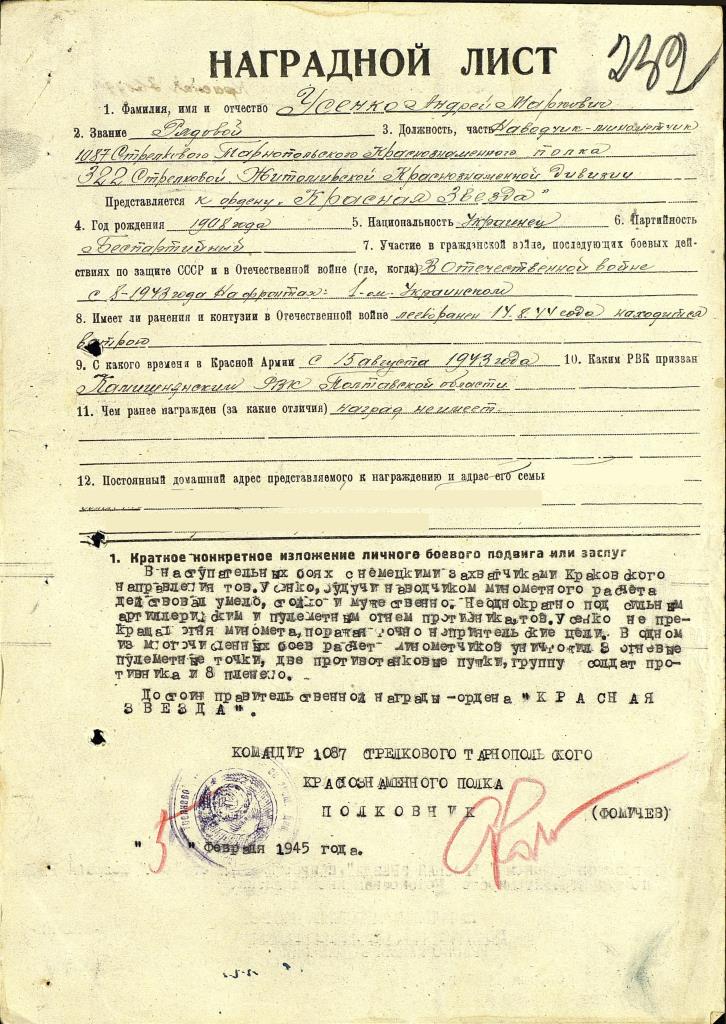 НАГРАДНОЙ ЛИСТ
239
1. Фамилия, имя и отчество Усенко Андрей Маркович
2. Звание Рядовой 3. Должность, часть Наводчик-минометчик
1087 Стрелкового Тарнопольского Краснознаменного полка
322 Стрелковой Житомирской Краснознаменной Дивизии
Представляется к ордену „Красная Звезда"
4. Год рождения 1908 года 5. Национальность Украинец 6. Партийность
Беспартийный 7. Участие в гражданской войне, последующих боевых дей-
ствиях по защите СССР и в Отечественной войне (где, когда) В Отечественной войне
с 8-1943 года На фронтах: 1-ом. Украинском
8. Имеет ли ранения и контузии в Отечественной войне легкоранен 14.8.44 года находится
в строю
9. С какого времени в Красной Армии с 15 августа 1943 года 10. Каким РВК призван
РВК Полтавской области
11. Чем ранее награжден (за какие отличия) наград неимеет.
12. Постоянный домашний адрес представляемого к награждению и адрес его семьи
1. Краткое конкретное изложение личного боевого подвига или заслуг
В наступательных боях с немецкими захватчиками Краковского
направления тов. Усенко, будучи наводчиком минометного расчета
действовал умело, стойко и мужественно. Неоднократно под сильным
артиллерийским и пулеметным огнем противника, тов. Усенко не пре-
кращал огня миномета, поражая точно неприятельские цели. В одном
из многочисленных боев расчет минометчиков уничтожил 3 огневые
пулеметные точки, две противотанковые пушки, группу солдат про-
тивника и 8 пленено.
Достоин правительственной награды-ордена "КРАСНАЯ
ЗВЕЗДА".
КОМАНДИР 1087 СТРЕЛКОВОГО ТАРНОПОЛЬСКОГО
КРАСНОЗНАМЕННОГО ПОЛКА
ПОЛКОВНИК (ФОМИЧЕВ)
" 5 " Февраля 1945 года.